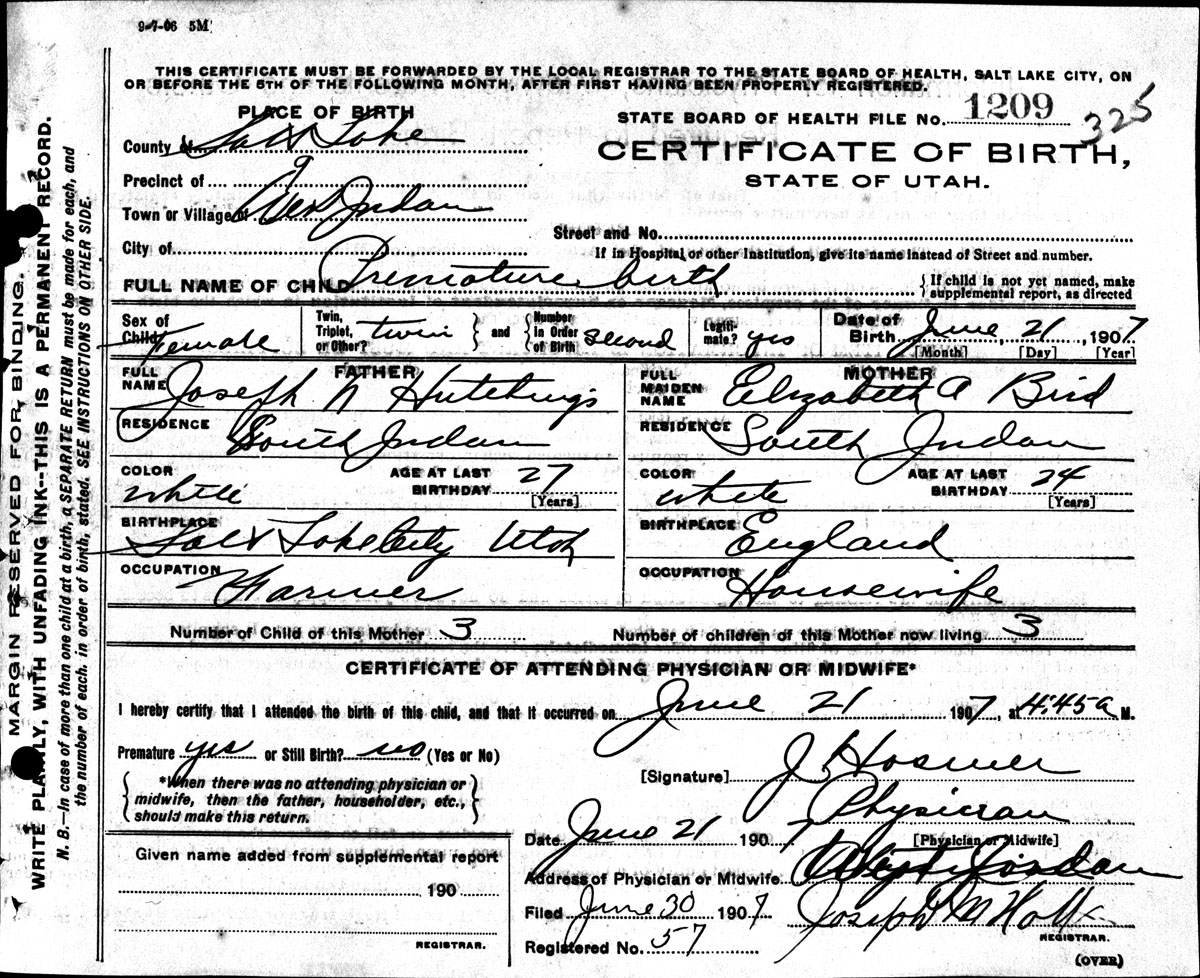 9-7-06 5M
THIS CERTIFICATE MUST BE FORWARDED BY THE LOCAL REGISTRAR TO THE STATE BOARD OF HEALTH, SALT LAKE CITY, ON
OR BEFORE THE 5TH OF THE FOLLOWING MONTH, AFTER FIRST HAVING BEEN PROPERLY REGISTERED.
PLACE OF BIRTH
STATE BOARD OF HEALTH FILE No. 1209 325
County of Salt Lake
CERTIFICATE OF BIRTH,
STATE OF UTAH.
Precinct of
Town or Village of West Jordan
Street and No.
City of
If in Hospital or other Institution, give its name instead of Street and number.
FULL NAME OF CHILD Premature birth
{If child is not yet named, make
supplemental report, as directed
Sex of Child Female
Twin, Triplet, or Other? twin } and { Number in Order of Birth second
Legitimate? yes
Date of Birth June 21, 1907
[Month] [Day] [Year]
FATHER
FULL NAME Joseph N Hutchings
RESIDENCE South Jordan
COLOR white
AGE AT LAST BIRTHDAY 27
[Years]
BIRTHPLACE Salt Lake City Utah
OCCUPATION Farmer
MOTHER
FULL MAIDEN NAME Elizabeth A Bird
RESIDENCE South Jordan
COLOR white
AGE AT LAST BIRTHDAY 24
[Years]
BIRTHPLACE England
OCCUPATION Housewife
Number of Child of this Mother 3
Number of children of this Mother now living 3
CERTIFICATE OF ATTENDING PHYSICIAN OR MIDWIFE*
I hereby certify that I attended the birth of this child, and that it occurred on June 21 1907, at 4:45 a M.
Premature yes or Still Birth? no (Yes or No)
{*When there was no attending physician or
midwife, then the father, householder, etc.,
should make this return.}
[Signature] J Hosmer
Physician
[Physician or Midwife]
Date June 21 1907
Address of Physician or Midwife West Jordan
Filed June 30 1907 Joseph M Holt
REGISTRAR.
Registered No. 57
(OVER)
Given name added from supplemental report
190
REGISTRAR.
MARGIN RESERVED FOR BINDING.
WRITE PLAINLY, WITH UNFADING INK--THIS IS A PERMANENT RECORD.
N. B.—In case of more than one child at a birth, a SEPARATE RETURN must be made for each, and
the number of each, in order of birth, stated. SEE INSTRUCTIONS ON OTHER SIDE.